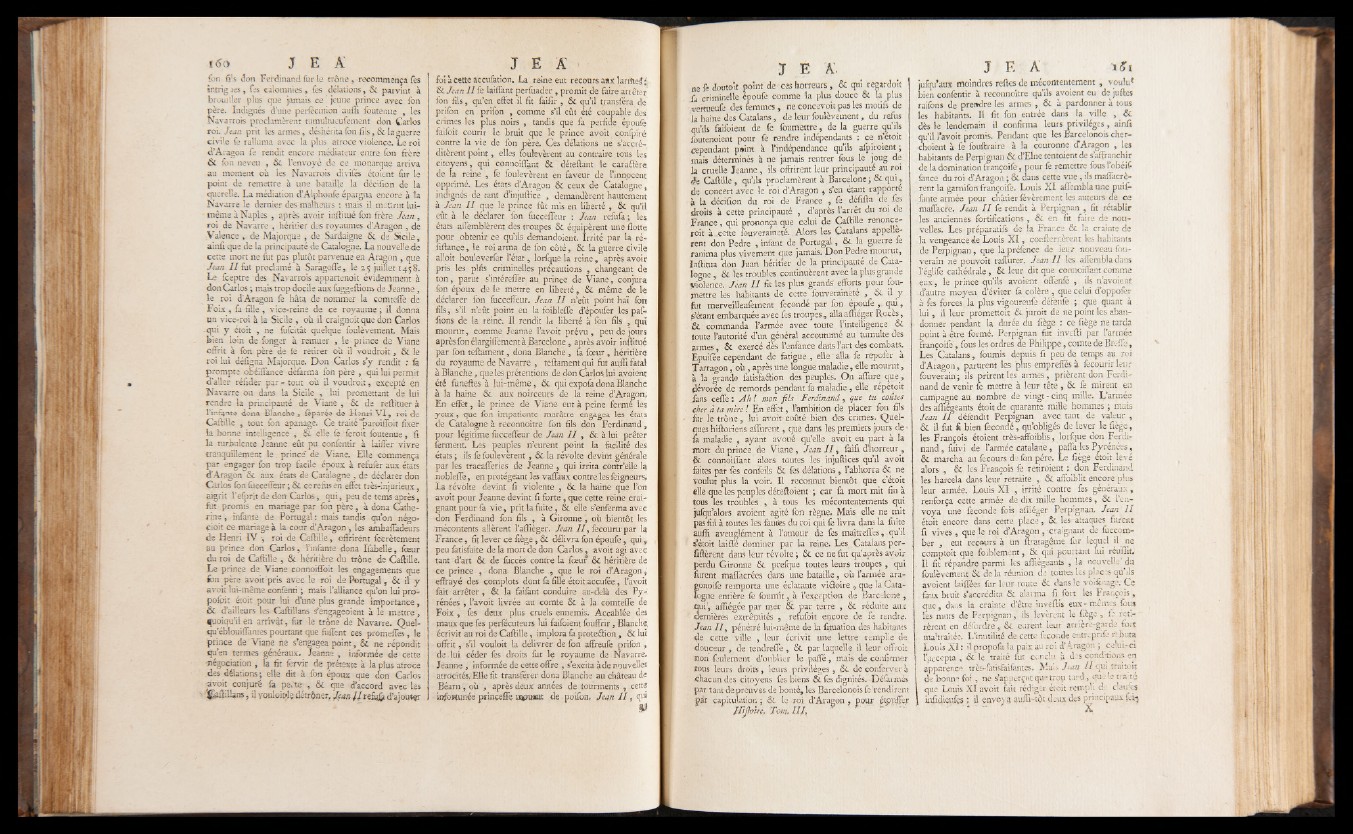 160 J E A
son fils don Ferdinand sur le trône, recommença ses
intrigues, ses calomnies, ses délations, & parvint à
brouiller plus que jamais ce jeune prince avec son
père. Indignés d'une persécution aussi soutenue, les
Navarrois proclamèrent tumultueusement don Carlos
roi. Jean prit les armes, déshérita son fils, & la guerre
civile se ralluma avec la plus atroce violence. Le roi
d'Aragon se rendit encore médiateur entre son frère
& son neveu, & l'envoyé de ce monarque arriva
au moment où les Navarrois divisés étoient sur le
point de remettre à une bataille la décision de la
querelle. La médiation d'Alphonse épargna encore à la
Navarre le dernier des malheurs : mais il mourut lui-
même à Naples, après avoir institué son frère Jean,
roi de Navarre, héritier des royaumes d'Aragon, de
Valence, de Majorque, de Sardaigne & de Sicile,
ainsi que de la principauté de Catalogne. La nouvelle de
cette mort ne fut pas plutôt parvenue en Aragon, que
Jean II fut proclamé à Saragosse, le 25 juillet 1458.
Le sceptre des Navarrois appartenoit évidemment à
don Carlos ; mais trop docile aux suggestions de Jeanne,
le roi d'Aragon se hâta de nommer la comtesse de
Foix, sa fille, vice-reine de ce royaume ; il donna
un vice-roi à la Sicile, où il craignoit que don Carlos
qui y étoit, ne suscitât quelque soulèvement. Mais
bien loin de songer à remuer, le prince de Viane
offrit à son père de se retirer où il voudroit, & le
roi lui désigna Majorque. Don Carlos s'y rendit : sa
prompte obéissance désarma son père, qui lui permit
d'aller résider par-tout où il voudroit, excepté en
Navarre ou dans la Sicile, lui promettant de lui
rendre la principauté de Viane, & de restituer à
l'infante dona Blanche, séparée de Henri VI, roi de
Castille, tout son apanage. Ce traité paroissoit fixer
la bonne intelligence, & elle se seroit soutenue, si
la turbulente Jeanne eût pu consentir à laisser vivre
tranquillement le prince de Viane. Elle commença
par engager son trop facile époux à refuser aux états
d'Aragon & aux états de Catalogne, de déclarer don
Carlos son successeur ; & ce refus en effet très-injurieux,
aigrit l'esprit de don Carlos, qui, peu de tems après,
fut promis en mariage par son père, à dona Cathe-
rine, infante de Portugal : mais tandis qu'on négo-
cioit ce mariage à la cour d'Aragon, les ambassadeurs
de Henri IV, roi de Castille, offrirent secrètement
au prince don Carlos, l'infante dona Isabelle, sœur
du roi de Castille, & héritière du trône de Castille.
Le prince de Viane connoissoit les engagements que
son père avoit pris avec le roi de Portugal, & il y
avoit lui-même consenti ; mais l'alliance qu'on lui pro-
posoit étoit pour lui d'une plus grande importance,
& d'ailleurs les Castillans s'engageoient à le mettre,
quoiqu'il en arrivât, sur le trône de Navarre. Quel-
qu'éblouissantes pourtant que fussent ces promesses, le
prince de Viane ne s'engagea point, & ne répondit
qu'en termes généraux. Jeanne, informée de cette
négociation, la fit servir de prétexte à la plus atroce
des délations ; elle dit à son époux que don Carlos
avoit conjuré sa perte, & que d'accord avec les
Castillans, il vouloit le détrôner. Jean II refusa d'ajouter
J E A
foi à cette accusation. La reine eut recours aux larmes ;
& Jean II se laissant persuader, promit de faire arrêter
son fils, qu'en effet il fit saisir, & qu'il transféra de
prison en prison, comme s'il eût été coupable des
crimes les plus noirs, tandis que sa perfide épouse
faisoit courir le bruit que le prince avoit conspiré
contre la vie de son père. Ces délations ne s'accré-
ditèrent point, elles soulevèrent au contraire tous les
citoyens, qui connoissant & détestant le caractère
de la reine, se soulevèrent en faveur de l'innocent
opprimé. Les états d'Aragon & ceux de Catalogne,
indignés de tant d'injustice, demandèrent hautement
à Jean II que le prince fût mis en liberté, & qu'il
eût à le déclarer son successeur : Jean refusa ; les
états assemblèrent des troupes & équipèrent une flotte
pour obtenir ce qu'ils demandoient. Irrité par la ré-
sistance, le roi arma de son côté, & la guerre civile
alloit bouleverser l'état, lorsque la reine, après avoir
pris les plus criminelles précautions, changeant de
ton, parut s'intéresser au prince de Viane, conjura
son époux de le mettre en liberté, & même de le
déclarer son successeur. Jean II n'eût point haï son
fils, s'il n'eût point eu la foiblesse d'épouser les pas-
sions de la reine. Il rendit la liberté à son fils, qui
mourut, comme Jeanne l'avoit prévu, peu de jours
après son élargissement à Barcelone, après avoir institué
par son testament, dona Blanche, sa sœur, héritière
du royaume de Navarre, testament qui fut aussi fatal
à Blanche, que les prétentions de don Carlos lui avoient
été funestes à lui-même, & qui exposa dona Blanche
à la haine & aux noirceurs de la reine d'Aragon.
En effet, le prince de Viane eut à peine fermé les
yeux, que son impatiente marâtre engagea les états
de Catalogne à reconnoitre son fils don Ferdinand,
pour légitime successeur de Jean II, & à lui prêter
serment. Les peuples n'eurent point la facilité des
états ; ils se soulevèrent, & la révolte devint générale
par les tracasseries de Jeanne, qui irrita contr'elle la
noblesse, en protégeant les vassaux contre les seigneurs.
La révolte devint si violente, & la haine que l'on
avoit pour Jeanne devint si forte, que cette reine crai-
gnant pour sa vie, prit la fuite, & elle s'enferma avec
don Ferdinand son fils, à Gironne, où bientôt les
mécontents allèrent l'assiéger. Jean II, secouru par la
France, fit lever ce siège, & délivra son épouse, qui,
peu satisfaite de la mort de don Carlos, avoit agi avec
tant d'art & de succès contre la sœur & héritière de
ce prince, dona Blanche, que le roi d'Aragon,
effrayé des complots dont sa fille étoit accusée, l'avoit
fait arrêter, & la faisant conduire au-delà des Py-
rénées, l'avoit livrée au comte & à la comtesse de
Foix, ses deux plus cruels ennemis. Accablée des
maux que ses persécuteurs lui faisoient souffrir, Blanche
écrivit au roi de Castille, implora sa protection, & lui
offrit, s'il vouloit la délivrer de son affreuse prison,
de lui céder ses droits sur le royaume de Navarre.
Jeanne, informée de cette offre, s'excita à de nouvelles
atrocités. Elle fit transférer dona Blanche au château de
Béarn, où, après deux années de tourments, cette
infortunée princesse mourut de poison. Jean II, qui
J E A
ne se doutoit point de ces horreurs, & qui regardoit
sa criminelle épouse comme la plus douce & la plus
vertueuse des femmes, ne concevoit pas les motifs de
la haine des Catalans, de leur soulèvement, du refus
qu'ils faisoient de se soumettre, de la guerre qu'ils
soutenoient pour se rendre indépendants : ce n'étoit
cependant point à l'indépendance qu'ils aspiroient ;
mais déterminés à ne jamais rentrer sous le joug de
la cruelle Jeanne, ils offrirent leur principauté au roi
de Castille, qu'ils proclamèrent à Barcelone ; & qui,
de concert avec le roi d'Aragon, s'en étant rapporté
à la décision du roi de France, se désista de ses
droits à cette principauté, d'après l'arrêt du roi de
France, qui prononça que celui de Castille renonce-
roit à cette souveraineté. Alors les Catalans appellè-
rent don Pedre, infant de Portugal, & la guerre se
ranima plus vivement que jamais. Don Pedre mourut,
Institua don Jean héritier de la principauté de Cata-
logne, & les troubles continuèrent avec la plus grande
violence. Jean II fit les plus grands efforts pour sou-
mettre les habitants de cette souveraineté, & il y
fut merveilleusement secondé par son épouse, qui,
s'étant embarquée avec ses troupes, alla assiéger Roses,
& commanda l'armée avec toute l'intelligence &
toute l'autorité d'un général accoutumé au tumulte des
armes, & exercé dès l'enfance dans l'art des combats.
Epuisée cependant de fatigue, elle alla se reposer à
Tarragon, où, après une longue maladie, elle mourut,
à la grande satisfaction des peuples. On assure que,
dévorée de remords pendant sa maladie, elle répétoit
sans cesse : Ah ! mon fils Ferdinand, que tu coûtes
cher à ta mère ! En effet, l'ambition de placer son fils
sur le trône, lui avoit coûté bien des crimes. Quel-
ques historiens assurent, que dans les premiers jours de
sa maladie, ayant avoué qu'elle avoit eu part à la
mort du prince de Viane, Jean II, saisi d'horreur,
& connoissant alors toutes les injustices qu'il avoit
faites par ses conseils & ses délations, l'abhorra & ne
voulut plus la voir. Il reconnut bientôt que c'étoit
elle que les peuples détestoient ; car sa mort mit fin à
tous les troubles, à tous les mécontentements qui
jusqu'alors avoient agité son règne. Mais elle ne mit
pas fin à toutes les fautes du roi qui se livra dans la suite
aussi aveuglément à l'amour de ses maîtresses, qu'il
s'étoit laissé dominer par la reine. Les Catalans per-
sistèrent dans leur révolte, & ce ne fut qu'après avoir
perdu Gironne & presque toutes leurs troupes, qui
furent massacrées dans une bataille, où l'armée ara-
gonoise remporta une éclatante victoire, que la Cata-
logne entière se soumit, à l'exception de Barcelone,
qui, assiégée par mer & par terre, & réduite aux
dernières extrémités, refusoit encore de se rendre.
Jean II, pénétré lui-même de la situation des habitants
de cette ville, leur écrivit une lettre remplie de
douceur, de tendresse, & par laquelle il leur offroit
non seulement d'oublier le passé, mais de confirmer
tous leurs droits, leurs privilèges, & de conserver à
chacun des citoyens ses biens & ses dignités. Désarmés
par tant de preuves de bonté, les Barcelonois se rendirent
par capitulation ; & le roi d'Aragon, pour étouffer
Histoire. Tom. III.
J E A 161
jusqu'aux moindres restes de mécontentement, voulut
bien consentir à reconnoître qu'ils avoient eu de justes
raisons de prendre les armes, & à pardonner à tous
les habitants. Il fit son entrée dans la ville, &
dès le lendemain il confirma leurs privilèges, ainsi
qu'il l'avoit promis. Pendant que les Barcelonois cher-
choient à se soustraire à la couronne d'Aragon, les
habitants de Perpignan & d'Elne tentoient de s'affranchir
de la domination françoise, pour se remettre sous l'obéis-
sance du roi d'Aragon ; & dans cette vue, ils massacrè-
rent la garnison françoise. Louis XI assembla une puis-
sante armée pour châtier sévèrement les auteurs de ce
massacre. Jean II se rendit à Perpignan, fit rétablir
les anciennes fortifications, & en fit faire de nou-
velles. Les préparatifs de la France & la crainte de
la vengeance de Louis XI, consternèrent les habitants
de Perpignan, que la présence de leur nouveau sou-
verain ne pouvoit rassurer. Jean II les assembla dans
l'église cathédrale, & leur dit que connoissant comme
eux, le prince qu'ils avoient offensé, ils n'avoient
d'autre moyen d'éviter sa colère, que celui d'opposer
à ses forces la plus vigoureuse défense ; que quant à
lui, il leur promettoit & juroit de ne point les aban-
donner pendant la durée du siège : ce siège ne tarda
point à être formé. Perpignan fut investi par l'armée
françoise, sous les ordres de Philippe, comte de Bresse.
Les Catalans, soumis depuis si peu de temps au roi
d'Aragon, parurent les plus empressés à secourir leur
souverain ; ils prirent les armes, prièrent don Ferdi-
nand de venir se mettre à leur tête, & se mirent en
campagne au nombre de vingt-cinq mille. L'armée
des assiégeants étoit de quarante mille hommes ; mais
Jean II défendit Perpignan avec tant de valeur,
& il fut si bien secondé, qu'obligés de lever le siège,
les François étoient très-affoiblis, lorsque don Ferdi-
nand, suivi de l'armée catalane, passa les Pyrénées,
& marcha au secours de son père. Le siège étoit levé
alors, & les François se retiroient : don Ferdinand
les harcela dans leur retraite, & affoiblit encore plus
leur armée. Louis XI, irrité contre ses généraux,
renforça cette armée de dix mille hommes, & l'en-
voya une seconde fois assiéger Perpignan. Jean II
étoit encore dans cette place, & les attaques furent
si vives, que le roi d'Aragon, craignant de succom-
ber, eut recours à un stratagême sur lequel il ne
comptoit que foiblement, & qui pourtant lui réussit.
Il fit répandre parmi les assiégeants, la nouvelle du
soulèvement & de la réunion de toutes les places qu'ils
avoient laissées sur leur route & dans le voisinage. Ce
faux bruit s'accrédita & alarma si fort les François,
que, dans la crainte d'être investis eux-mêmes sous
les murs de Perpignan, ils levèrent le siège, se reti-
rèrent en désordre, & eurent leur arrière-garde fort
maltraitée. L'inutilité de cette seconde entreprise rebuta
Louis XI : il proposa la paix au roi d'Aragon ; celui-ci
l'accepta, & le traité fut conclu à des conditions en
apparence très-satisfaisantes. Mais Jean II qui traitoit
de bonne foi, ne s'apperçut que trop tard, que le traité
que Louis XI avoit fait rédiger étoit rempli de clauses
insidieuses ; il envoya aussi-tôt deux des principaux sei-
X